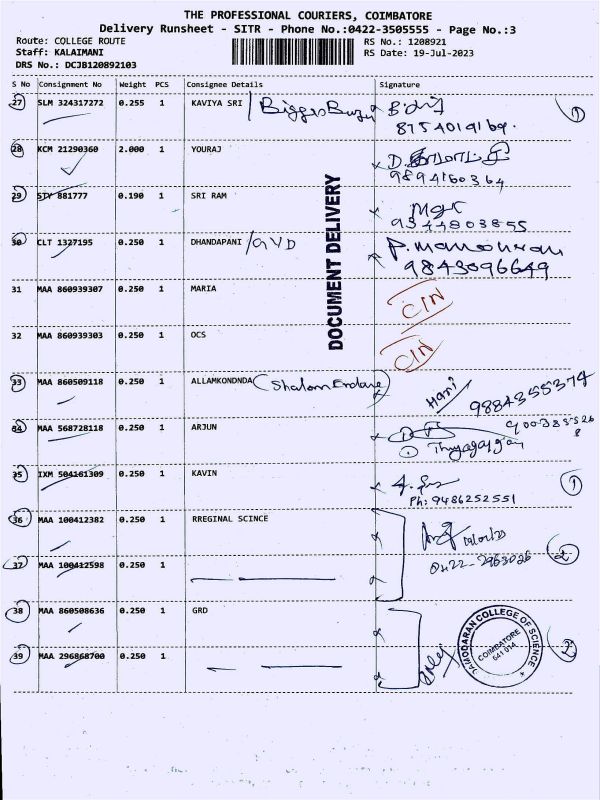 THE PROFESSIONAL COURIERS, COIMBATORE
Delivery Runsheet - SITR - Phone No.:0422-3505555 - Page No.:3
Route: COLLEGE ROUTE RS No.: 1208921
Staff: KALAIMANI RS Date: 19-Jul-2023
DRS No.: DCJB120892103
S No Consignment No Weight PCS Consignee Details Signature
27 SLM 324317272 0.255 1 KAVIYA SRI
8754014169.
28 KCM 21290360 2.000 1 YOURAJ
9894160364
29 STY 881777 0.190 1 SRI RAM
9344803855
30 CLT 1327195 0.250 1 DHANDAPANI /GVD
9843096649
DOCUMENT DELIVERY
31 MAA 860939307 0.250 1 MARIA CIN
32 MAA 860939303 0.250 1 OCS CIN
33 MAA 860509118 0.250 1 ALLAMKONDNDA Hari 9884355374
34 MAA 568728118 0.250 1 ARJUN
35 IXM 504161309 0.250 1 KAVIN 1
Ph: 9486252551
36 MAA 100412382 0.250 1 RREGINAL SCINCE
0422-2963026 2
37 MAA 100412598 0.250 1
38 MAA 860508636 0.250 1 GRD
DAMODARAN COLLEGE OF SCIENCE
COIMBATORE
641 014
2
39 MAA 296868700 0.250 1